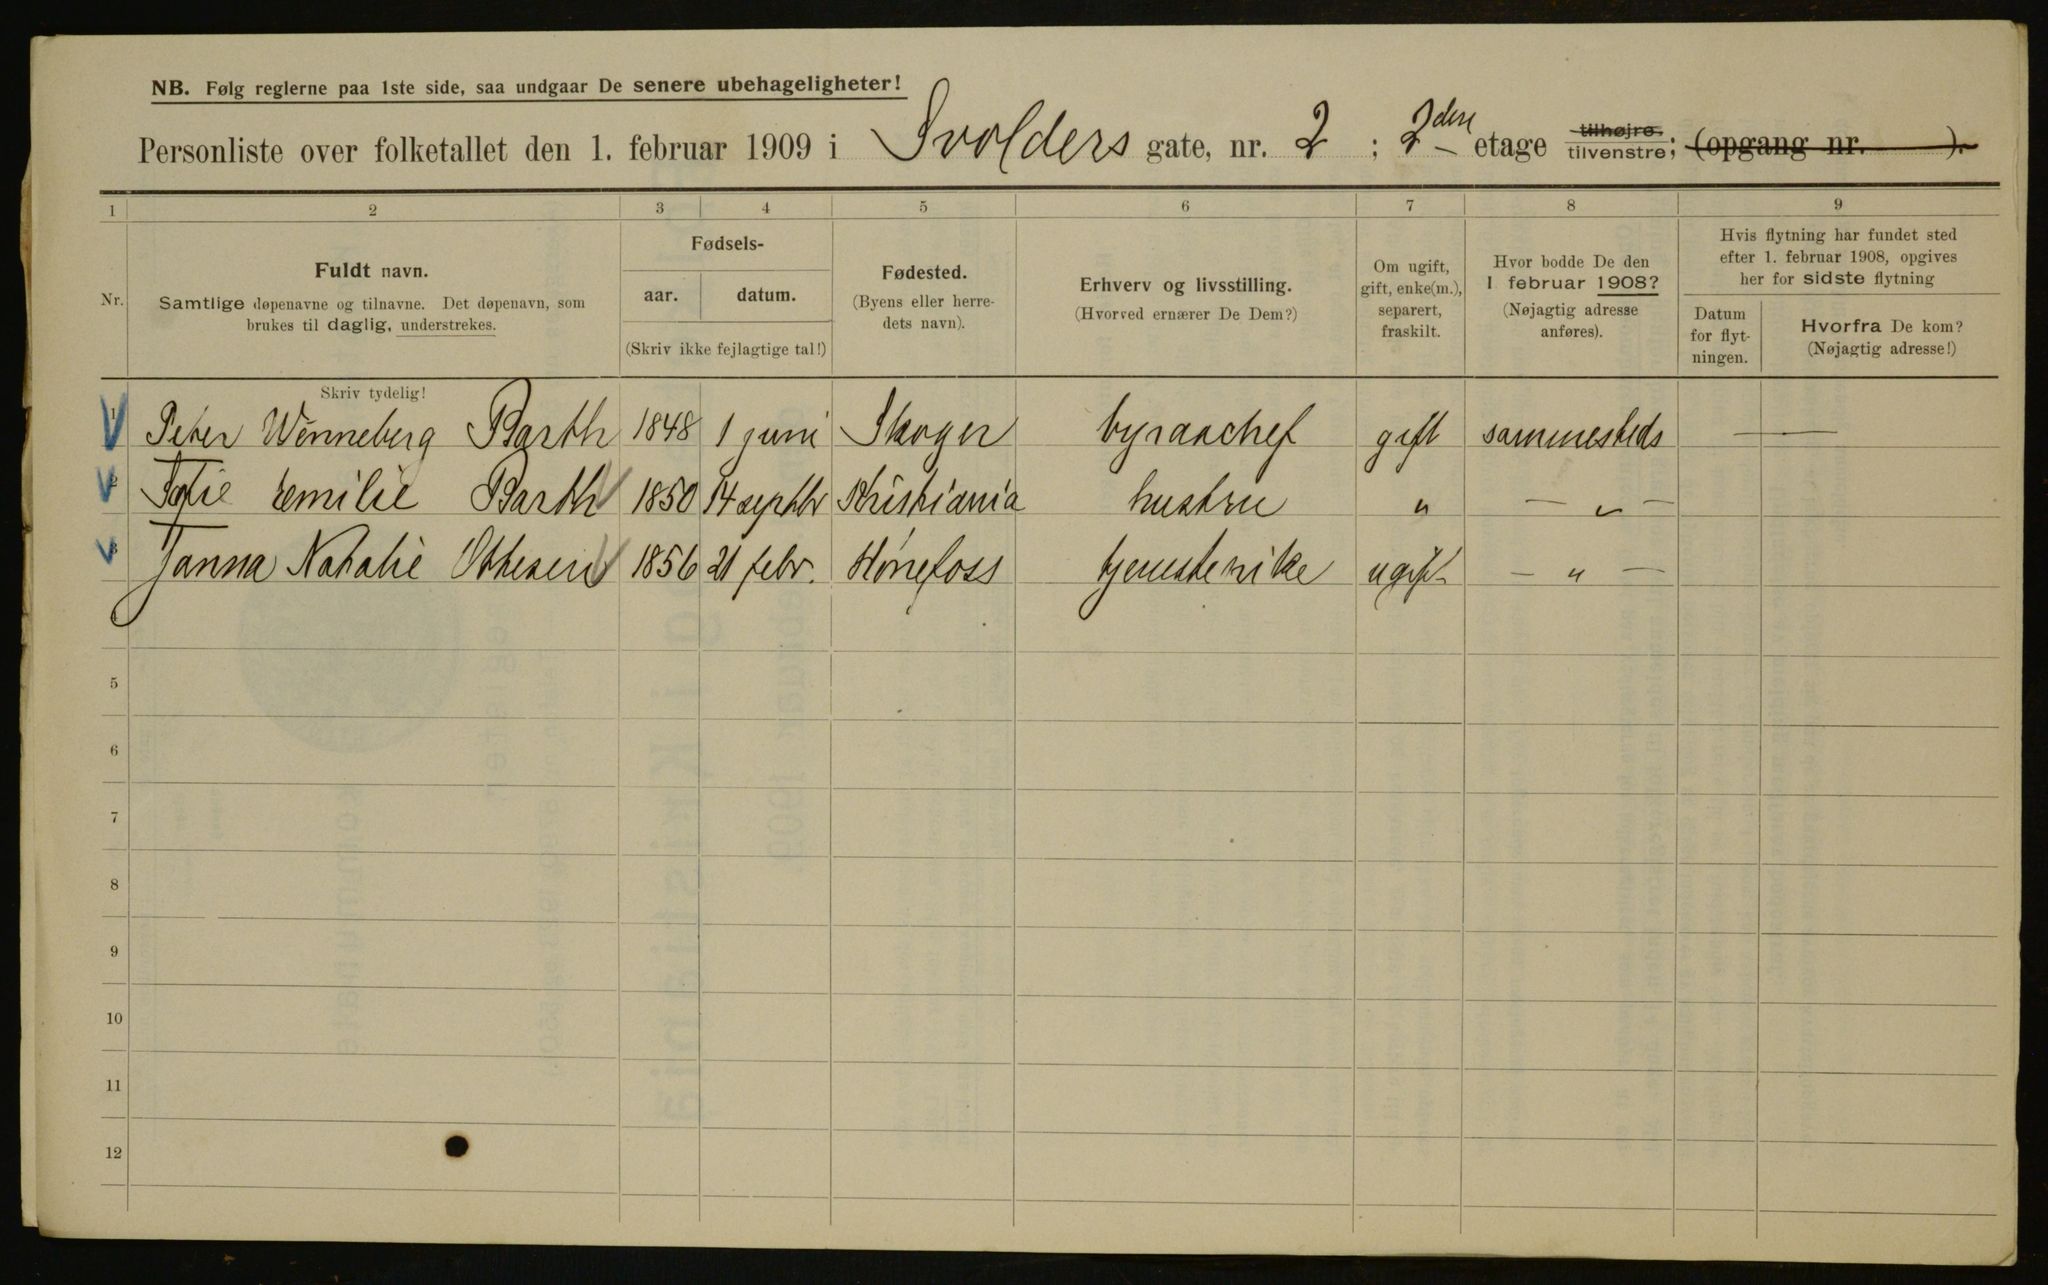 NB. Følg reglerne paa 1ste side, saa undgaar De senere ubehageligheter!
Personliste over folketallet den 1. februar 1909 i Svolders gate, nr. 2 ; 2den etage tilhøjre, tilvenstre; (opgang nr. ).
1 2 3 4 5 6 7 8 9
Nr.
Fuldt navn.
Samtlige døpenavne og tilnavne. Det døpenavn, som
brukes til daglig, understrekes.
Fødsels-
aar. datum.
(Skriv ikke fejlagtige tal!)
Fødested.
(Byens eller herre-
dets navn).
Erhverv og livsstilling.
(Hvorved ernærer De Dem?)
Om ugift,
gift, enke(m.),
separert,
fraskilt.
Hvor bodde De den
1 februar 1908?
(Nøjagtig adresse
anføres).
Hvis flytning har fundet sted
efter 1. februar 1908, opgives
her for sidste flytning
Datum
for flyt-
ningen.
Hvorfra De kom?
(Nøjagtig adresse!)
Skriv tydelig!
1 Peter Wenneberg Barth 1848 1 juni Skoger byraachef gift sammesteds —
2 Sofie Emilie Barth 1850 14 septbr Kristiania hustru " — " —
3 Janna Natalie Ottesen 1856 21 febr. Hønefoss tjenestepike ugift — " —
4
5
6
7
8
9
10
11
12